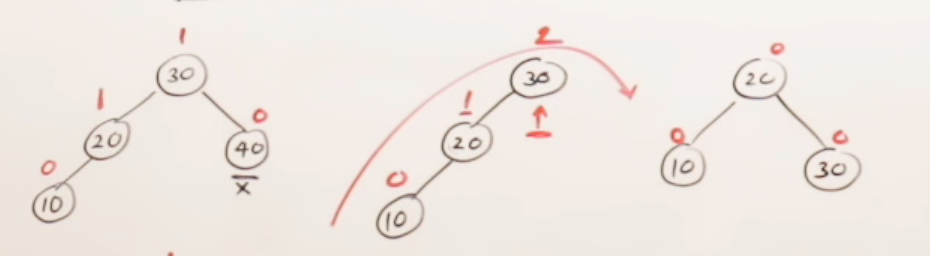 1
30
1
20
0
40
x
0
10
2
30
1
20
0
10
0
20
0
10
0
30